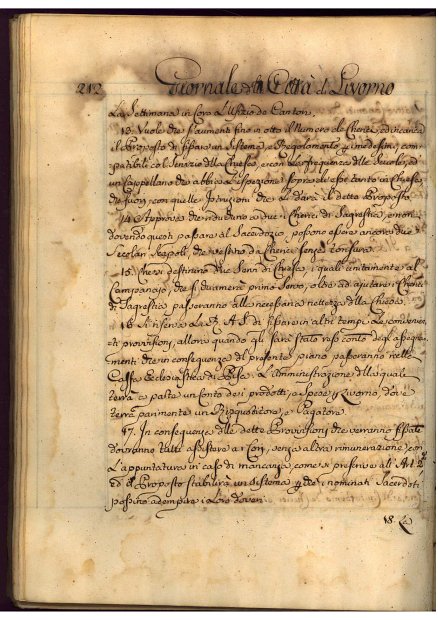 212 Giornale della Città di Livorno
La Settimana in Coro l'Ufizio de Canton.
13. Vuole che s'aumenti fino in otto il Numero de Cherici, ed incarica
il Proposto di fissare un Sistema, e Regolamento p. i medesimi, com-
patibili col Servizio della Chiesa, e con la frequenza delle Scuole, ed
un Cappellano che abbia l'Ispezione sopra di essi tanto in Chiesa,
che fuori, con quelle Istruzioni che li darà il detto Proposto
14. Approva che riducano a due i Cherici di Sagrestia, e non
dovendo questi passare al Sacerdozio, possono essere ancora due
Secolari Scapoli, che vestano da Cherici senza tonsura.
15. Che vi destinino due Servi di Chiesa, i quali unitamente al
Campanajo, che si chiamerà primo Servo, oltre ad ajutare i Cherici
di Sagrestia passeranno alla necessaria nettezza della Chiesa.
16. Si riserva la R. A. S. di fissare in altri tempi le convenien-
ti provvisioni, allora quando gli sarà stato reso conto degl'assegna-
menti che in conseguenza del presente piano passeranno nella
Cassa Ecclesiastica di Pisa. L'Amministrazione della quale
terrà a parte un conto dei prodotti, e Spese p. Livorno, dove
terrà parimente un Risquotitore, e Pagatore.
17. In conseguenza delle dette Provvisioni che verranno fissate
dovranno tutti assistere a Cori, senza altra rimunerazione, con
l'appuntatura in caso di mancanza, come si prescrive all'Art. 2
ed el Proposto stabilirà un sistema p. che i nominati Sacerdoti
possino adempire i loro doveri
18. La